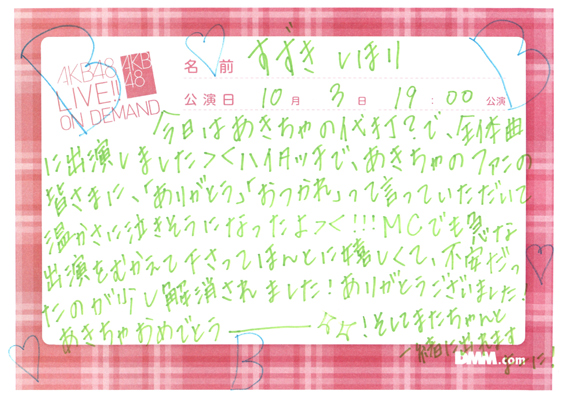 AKB48
LIVE!!
ON DEMAND
AKB
48
名前 すずき しほり
公演日 10月 3日 19:00 公演
今日はあきちゃの代打?で、全体曲
に出演しました><ハイタッチで、あきちゃのファンの
皆さまに、「ありがとう」「おつかれ」って言っていただいて
温かさに泣きそうになったよ><!!!MCでも急な
出演をむかえて下さってほんとに嬉しくて、不安だっ
たのが少し解消されました!ありがとうございました!
あきちゃおめでとう――☆☆!そしてまたちゃんと
一緒に出れます
ように!
B
B
B
DMM.com